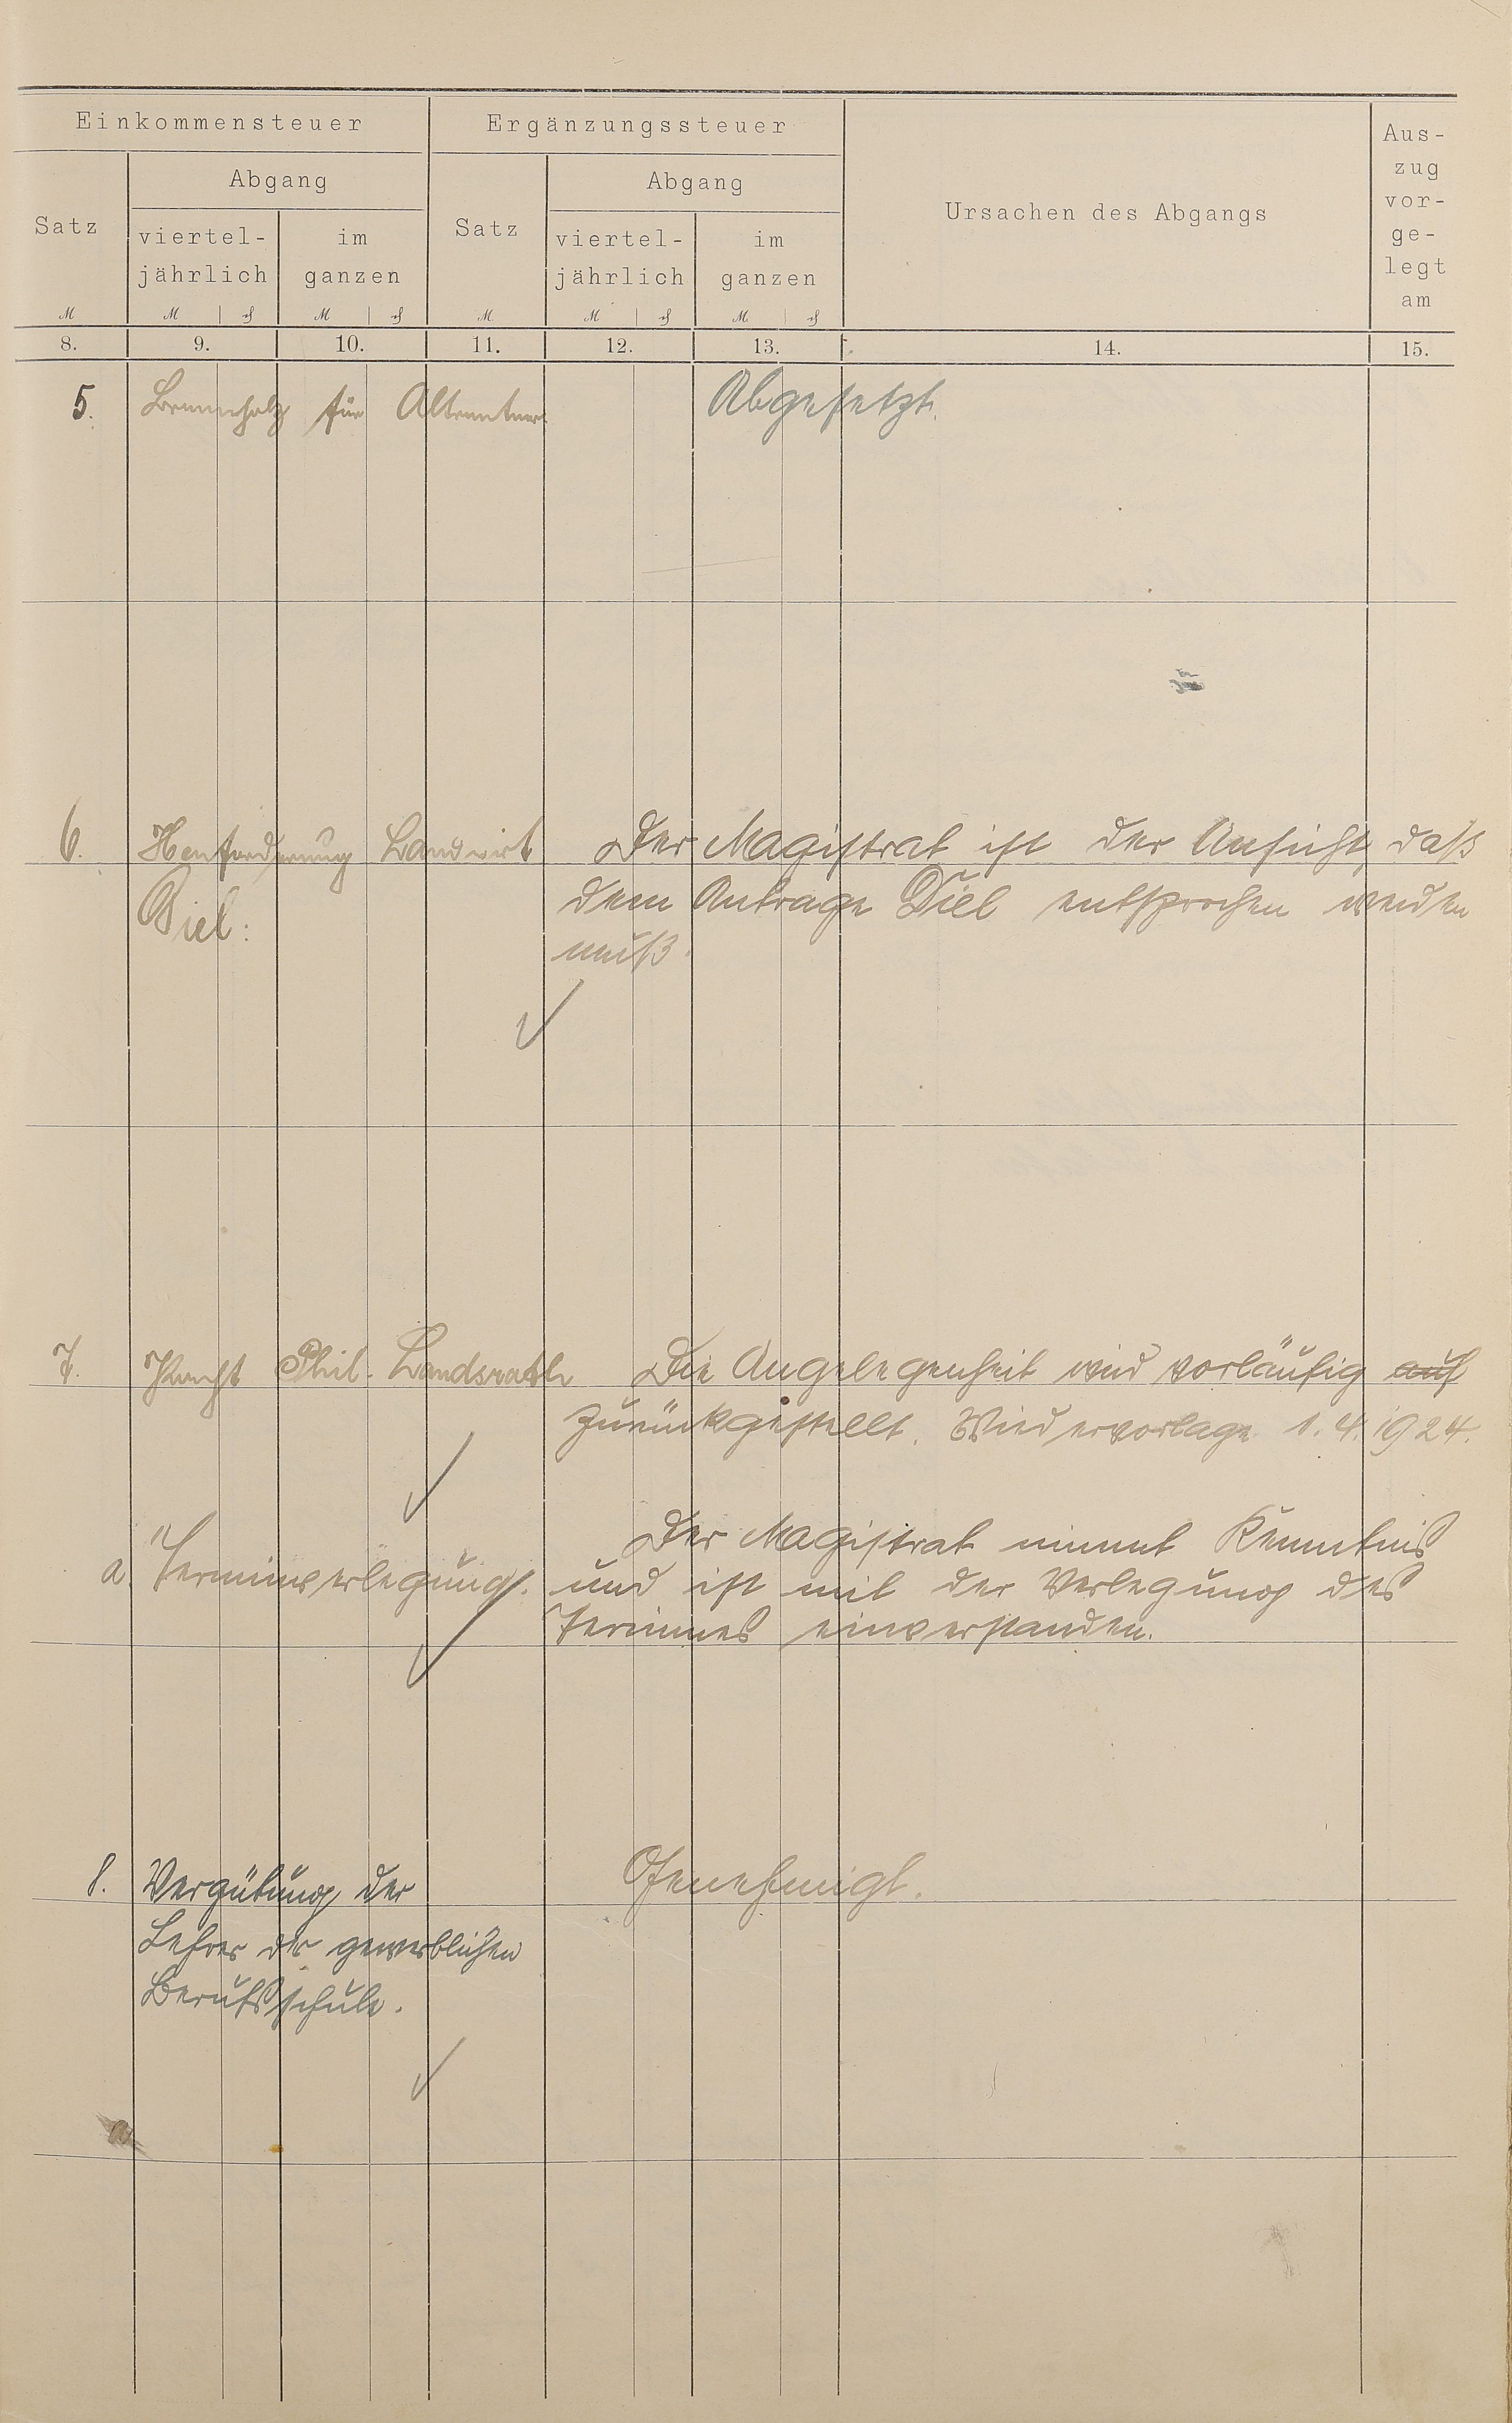 Einkommensteuer
Ergänzungssteuer
Ursachen des Abgangs
Aus-
zug
vor-
ge-
legt
am
Satz
Abgang
viertel-
jährlich
im
ganzen
Satz
Abgang
viertel-
jährlich
im
ganzen
M M ₰ M ₰ M M ₰ M ₰
8. 9. 10. 11. 12. 13. 14. 15.
5. Brennholz für Altrentner. Abgesetzt.
6. Landwirt
Diel:
Der Magistrat ist der Ansicht, daß
dem Antrage Diel entsprochen werden
muß.
7. Pacht Phil. Landsrath
Die Angelegenheit wird vorläufig auf
zurückgestellt. Wiedervorlage 1.4.1924.
a. Terminverlegung.
Der Magistrat nimmt Kenntnis
und ist mit der Verlegung des
Termines einverstanden.
8. Vergütung der
Lehrer der gewerblichen
Berufsschule.
Genehmigt.
a